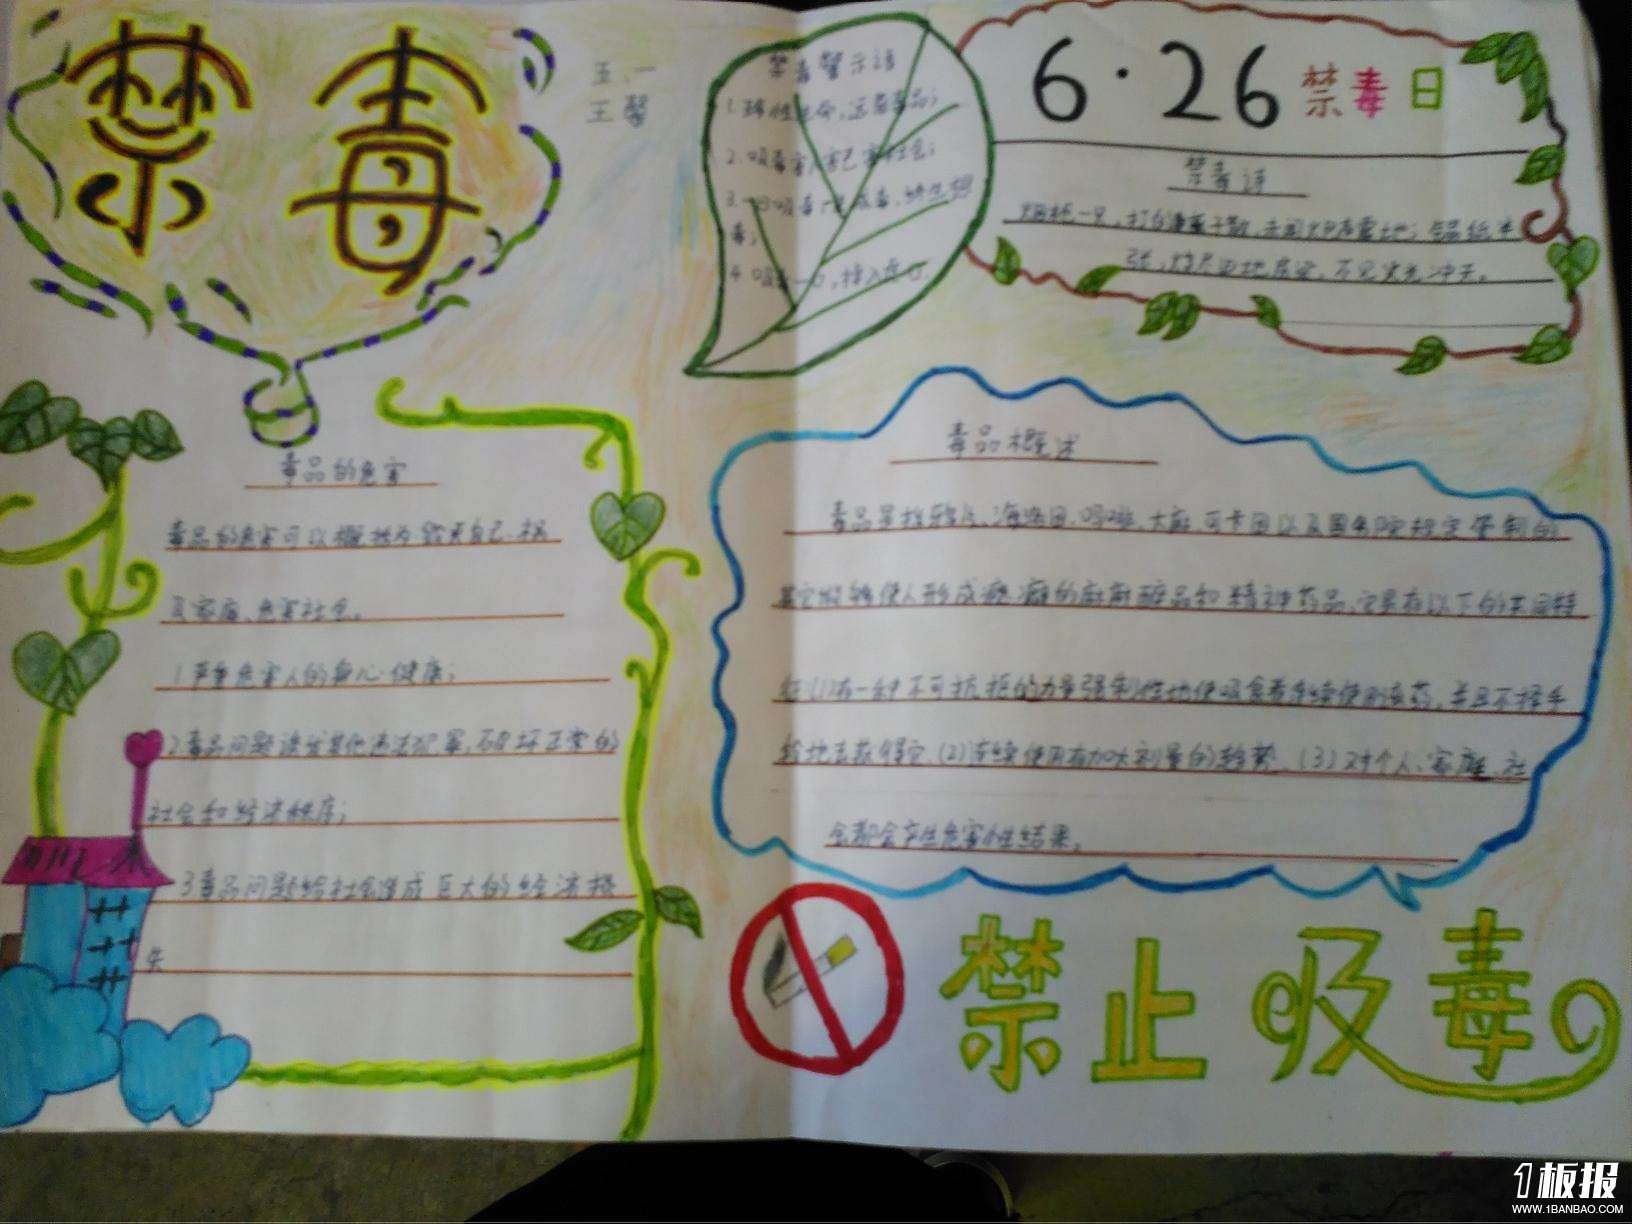 禁毒
五、一
王馨
禁毒警示语
1.珍惜生命,远离毒品;
2.吸毒害人害己害社会;
3.一日吸毒
毒;
4.吸毒一口,掉入虎口.
6·26禁毒日
禁毒诗
烟枪一只,打
毒品的危害
毒品的危害可以概括为毁灭自己、祸
及家庭、危害社会。
1严重危害人的身心健康;
2毒品问题诱发其他违法犯罪,破坏正常的
社会和经济秩序;
3毒品问题给社会造成巨大的经济损
失
毒品概述
毒品是指鸦片、海洛因、吗啡、大麻、可卡因以及国务院规定管制的
其它能够使人形成瘾癖的麻醉品和精神药品,它具有以下的共同特
征:(1)有一种不可抗拒的力量强制性地使吸食者连续使用该药,并且不择手
段地去获得它、(2)连续使用有加大剂量的趋势、(3)对个人、家庭、社
会都会产生危害性结果。
禁止吸毒
1板报
WWW.1BANBAO.COM